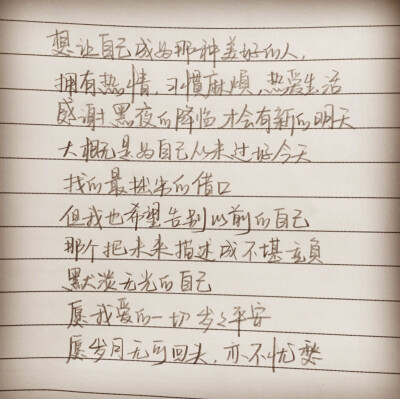 想让自己成为那种美好的人,
拥有热情,习惯麻烦,热爱生活
感谢黑夜的降临才会有新的明天
大概是为自己从来过好今天
找的最拙劣的借口
但我也希望告别以前的自己
那个把未来描述成不堪重负
黯淡无光的自己
愿我爱的一切岁岁平安
愿岁月无可回头,亦不忧愁